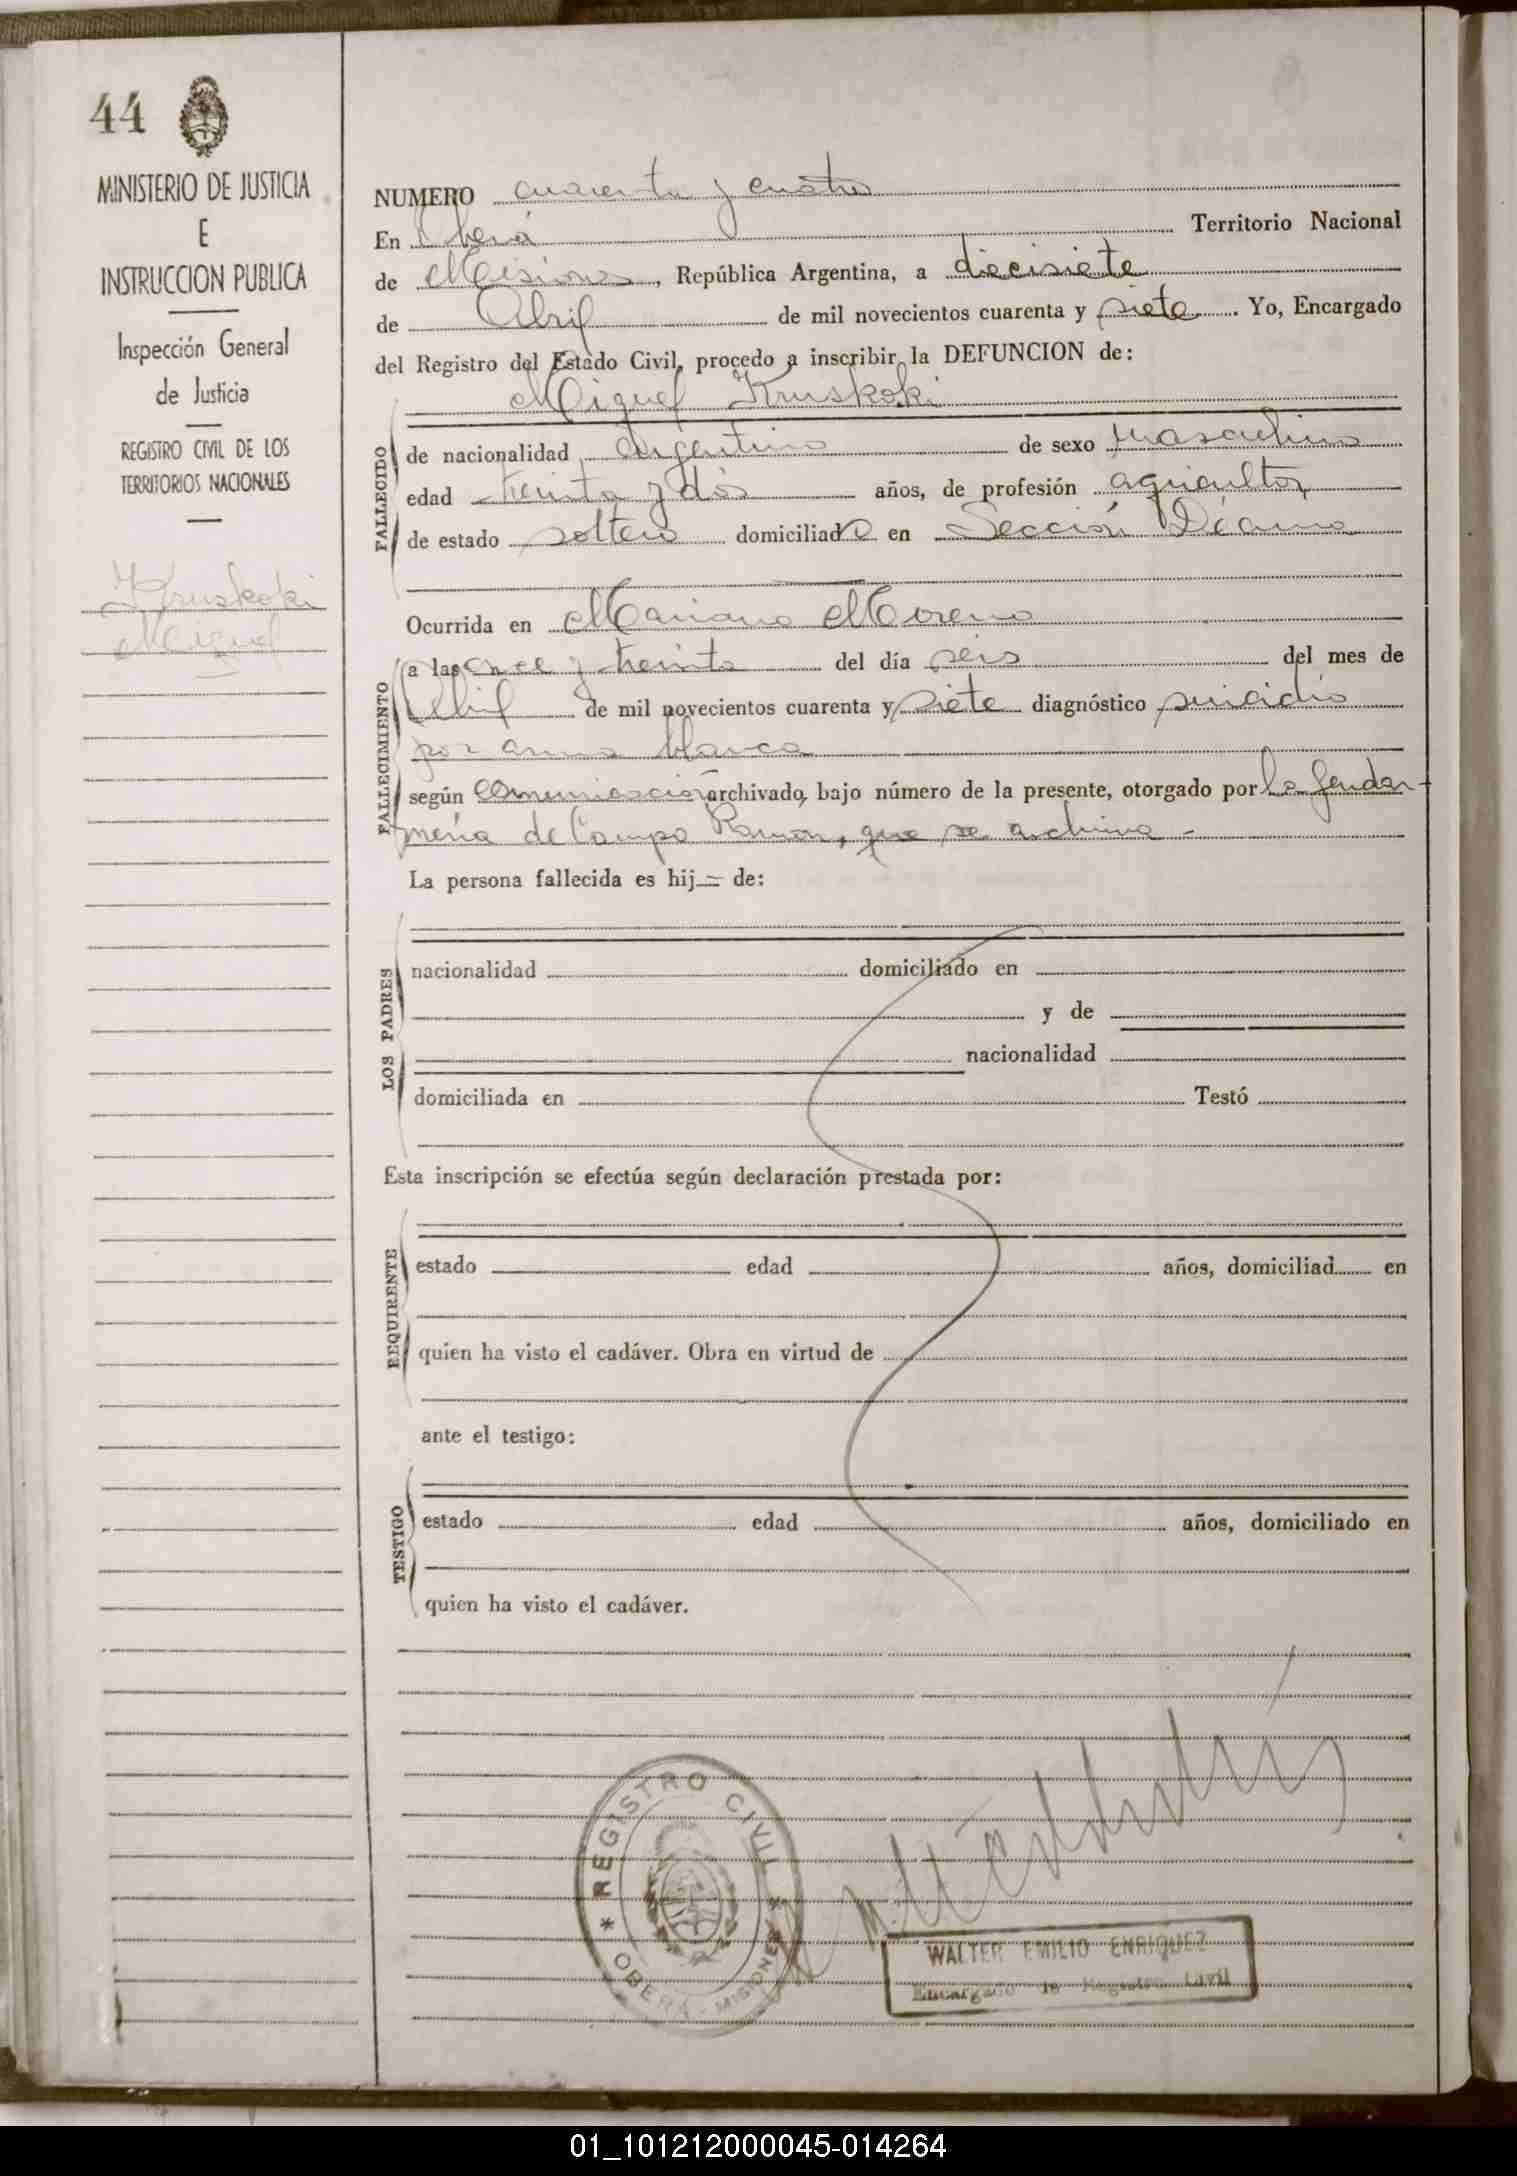 44
MINISTERIO DE JUSTICIA
E
INSTRUCCION PUBLICA
Inspección General
de Justicia
REGISTRO CIVIL DE LOS
TERRITORIOS NACIONALES
Kruskoki
Miguel
NUMERO cuarenta y cuatro
En Oberá Territorio Nacional
de Misiones, República Argentina, a diecisiete
de Abril de mil novecientos cuarenta y siete. Yo, Encargado
del Registro del Estado Civil, procedo a inscribir la DEFUNCION de:
Miguel Kruskoki
FALLECIDO
de nacionalidad argentino de sexo masculino
edad treinta y dos años, de profesión agricultor
de estado soltero domiciliado en Sección Décima
Ocurrida en Mariano Moreno
FALLECIMIENTO
a las once y treinta del día seis del mes de
Abril de mil novecientos cuarenta y siete diagnóstico suicidio
por arma blanca
según comunicación archivado, bajo número de la presente, otorgado por la Gendar-
mería de Campo Ramón, que se archiva -
La persona fallecida es hij = de:
LOS PADRES
nacionalidad domiciliado en
y de
nacionalidad
domiciliada en Testó
Esta inscripción se efectúa según declaración prestada por:
REQUIRENTE
estado edad años, domiciliad en
quien ha visto el cadáver. Obra en virtud de
ante el testigo:
TESTIGO
estado edad años, domiciliado en
quien ha visto el cadáver.
* REGISTRO CIVIL *
OBERA - MISIONES
WALTER EMILIO ENRIQUEZ
Encargado de Registro Civil
01_101212000045-014264